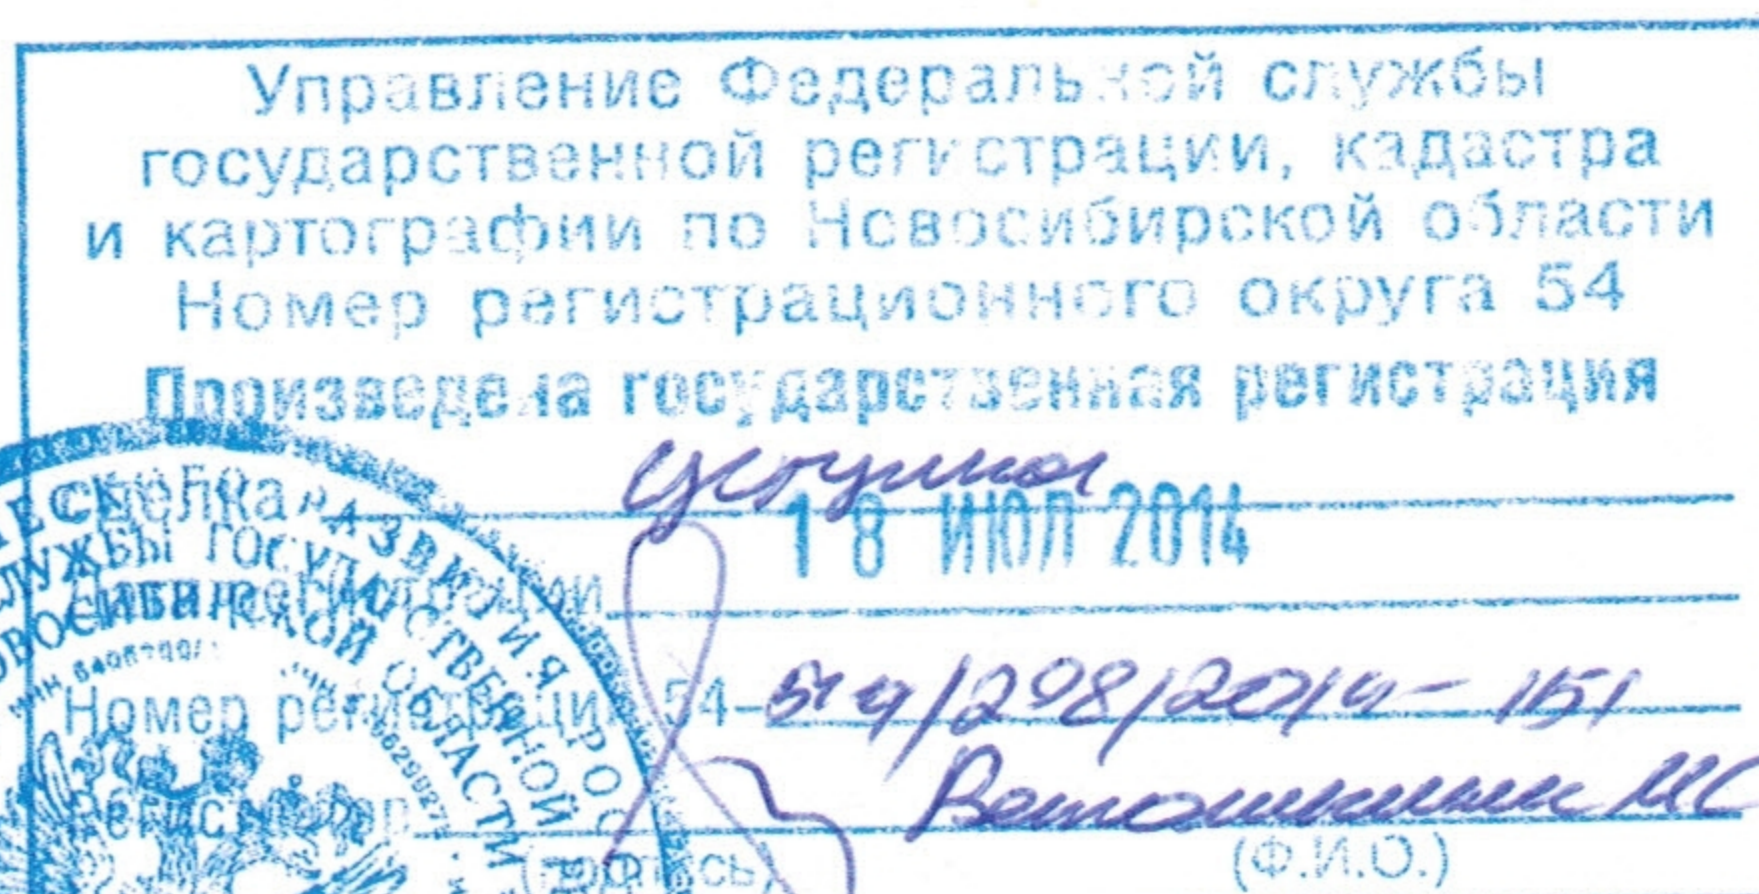 Управление Федеральной службы
государственной регистрации, кадастра
и картографии по Новосибирской области
Номер регистрационного округа 54
Произведена государственная регистрация
Сделка уступка
Дата регистрации 18 ИЮЛ 2014
Номер регистрации 54-
/208/2014-151
Регистратор
(подпись) (Ф.И.О.)
СЛУЖБЫ ГОСУДАРСТВЕННОЙ
НОВОСИБИРСКОЙ ОБЛАСТИ